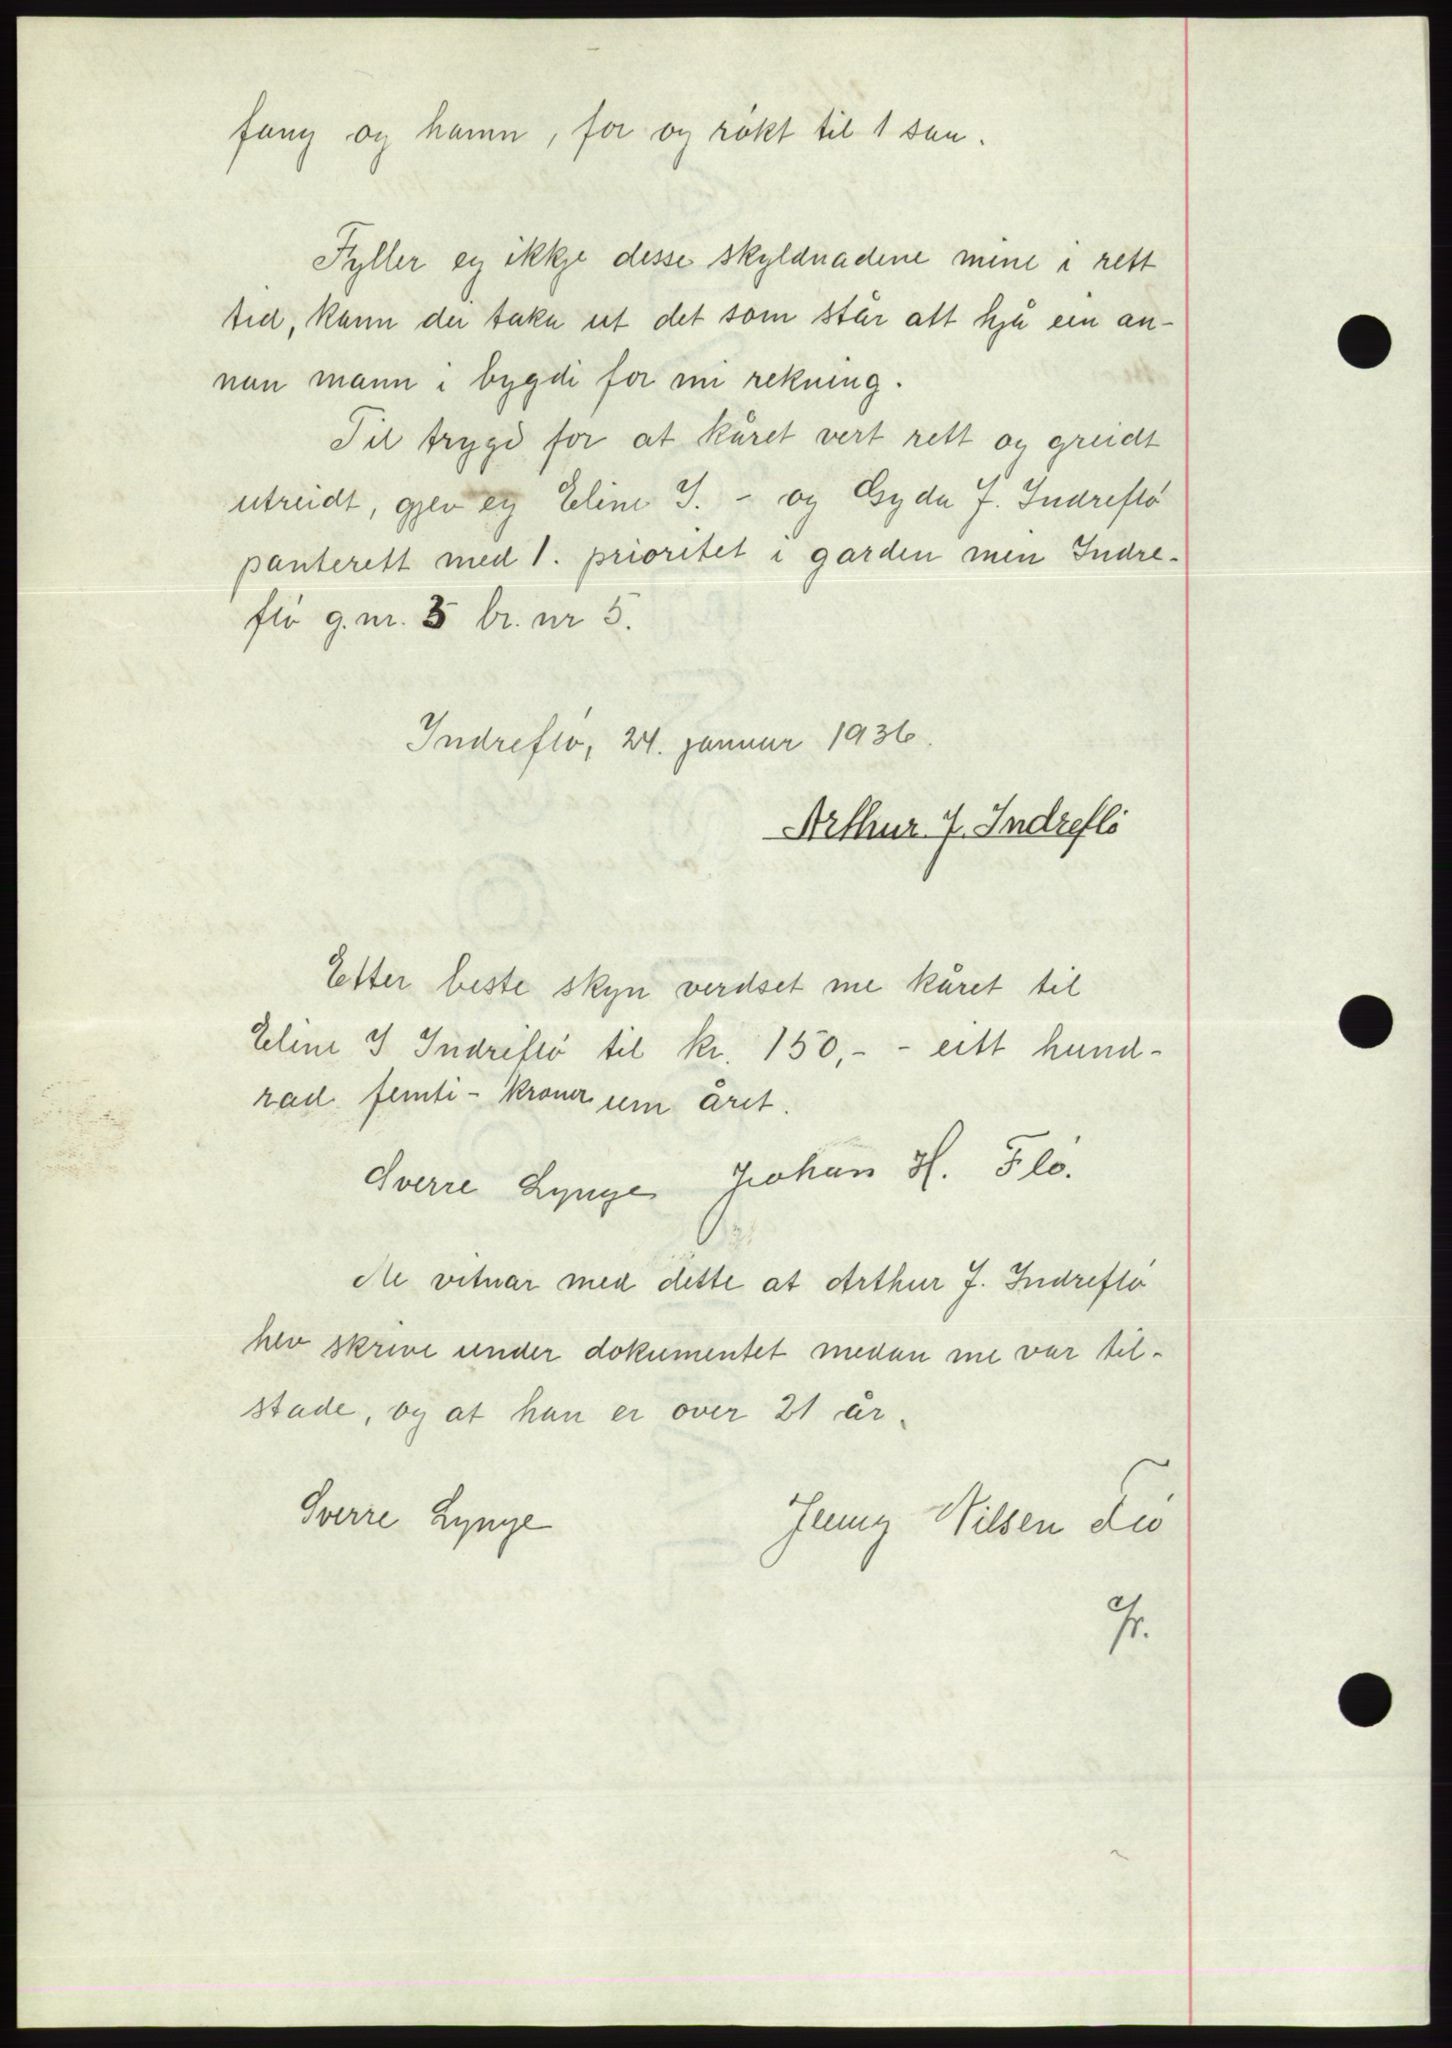 fang og hamn, for og rökt til 1 sau.
Fyller eg ikkje desse skyldnadene mine i rett
tid, kann dei taka ut det som står att hjå ein an-
nan mann i bygdi for mi rekning.
Til trygd for at kåret vert rett og greidt
utreidt, gjev eg Eline I. - og Gyda J. Indreflö
panterett med 1. prioritet i garden min Indre-
flö g.nr. 5 br. nr 5.
Indreflö, 24. januar 1936.
Arthur J. Indreflö
Etter beste skyn verdset me kåret til
Eline I Indreflö til kr. 150,- - eitt hund-
rad femti - kroner um året.
Sverre Lynge Johan H. Flö.
Me vitnar med dette at Arthur J. Indreflö
hev skrive under dokumentet medan me var til-
stade, og at han er over 21 år.
Sverre Lynge Jenny Nilsen Flö